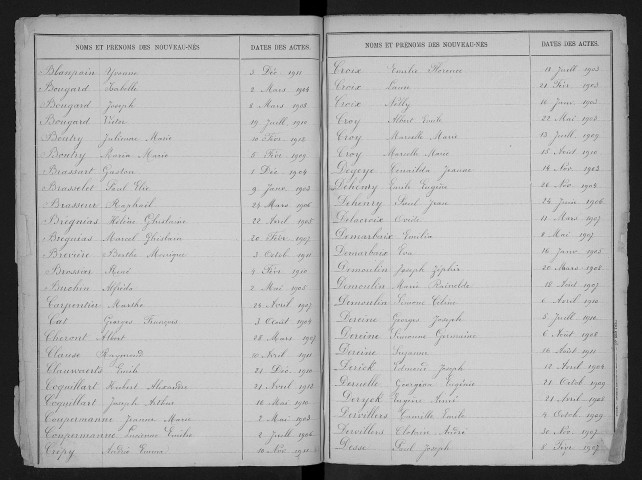 NOMS ET PRÉNOMS DES NOUVEAU-NÉS DATES DES ACTES.
Blanpain Yvonne 3 Déc. 1911
Bougard Isabelle 2 Mars 1904
Bougard Joseph 8 Mars 1908
Bougard Victor 19 Juill. 1910
Boutry Julienne Marie 10 Févr
Boutry Maria Marie 5 Févr 1909
Brassart Gaston 1 Déc. 1904
Brasselet Paul Elie 9 Janv. 1903
Brasseur Raphaël 24 Mars 1906
Bréguias Hélène Ghislaine 22 Avril 1905
Bréguias Marcel Ghislain 20 Févr 1907
Brevière Berthe Monique 3 Octob. 1911
Brossier René 4 Févr. 1910
Buchin Alfréda 2 Mai 1905
Carpentier Marthe 26 Avril 1907
Cas Georges François 3 Août 1904
Cheront Albert 25 Mars 1907
Clause Raymond 10 Avril 1911
Clauwaerts Emile 21 Déc. 1910
Coquillart Hubert Alexandre 21 Avril
Coquillart Joseph Arthur 10 Mai 1910
Coupermanne Jeanne Marie 2 Mai 1903
Coupermanne Suzanne Emilie 2 Juill. 1906
Crépy Andrée Emma 10 Nov.
NOMS ET PRÉNOMS DES NOUVEAU-NÉS DATES DES ACTES.
Croix Emilie Florence 12 Juill. 1903
Croix 21 Févr 1903
Croix Nelly 16 Janv
Croy Albert Emile 22 Mai 1903
Croy Marcelle Marie 13 Juill. 1909
Croy Marcelle Marie 15 Août 1910
Jeanne 14 Nov. 1903
Dehemy Emile Eugène 26 Nov. 1904
Paul Jean 24 Juin 1906
Delacroix 11 Mars 1907
Demarbaix Emilia 8 Mai 1907
Demarbaix Eva 16 Janv. 1905
Demoulin Joseph Zéphir 20 Mars 1905
Demoulin Marie 15 Août 1907
Demoulin Simone Céline 6 Avril 1910
Dereine Georges Joseph 5 Juill. 1911
Dereine Simonne Germaine 6 Août 1908
Dereine Suzanne 16 Août 1911
Derick Edmond Joseph 12 Avril 1904
Dernelle Georgina Eugénie 21 Octob 1909
Eugène Henri 21 Avril
Dervillers Camille Emile 4 Octob. 1909
Dervillers Clotaire André 30 Nov. 1907
Desse Paul Joseph 5 Févr. 1907